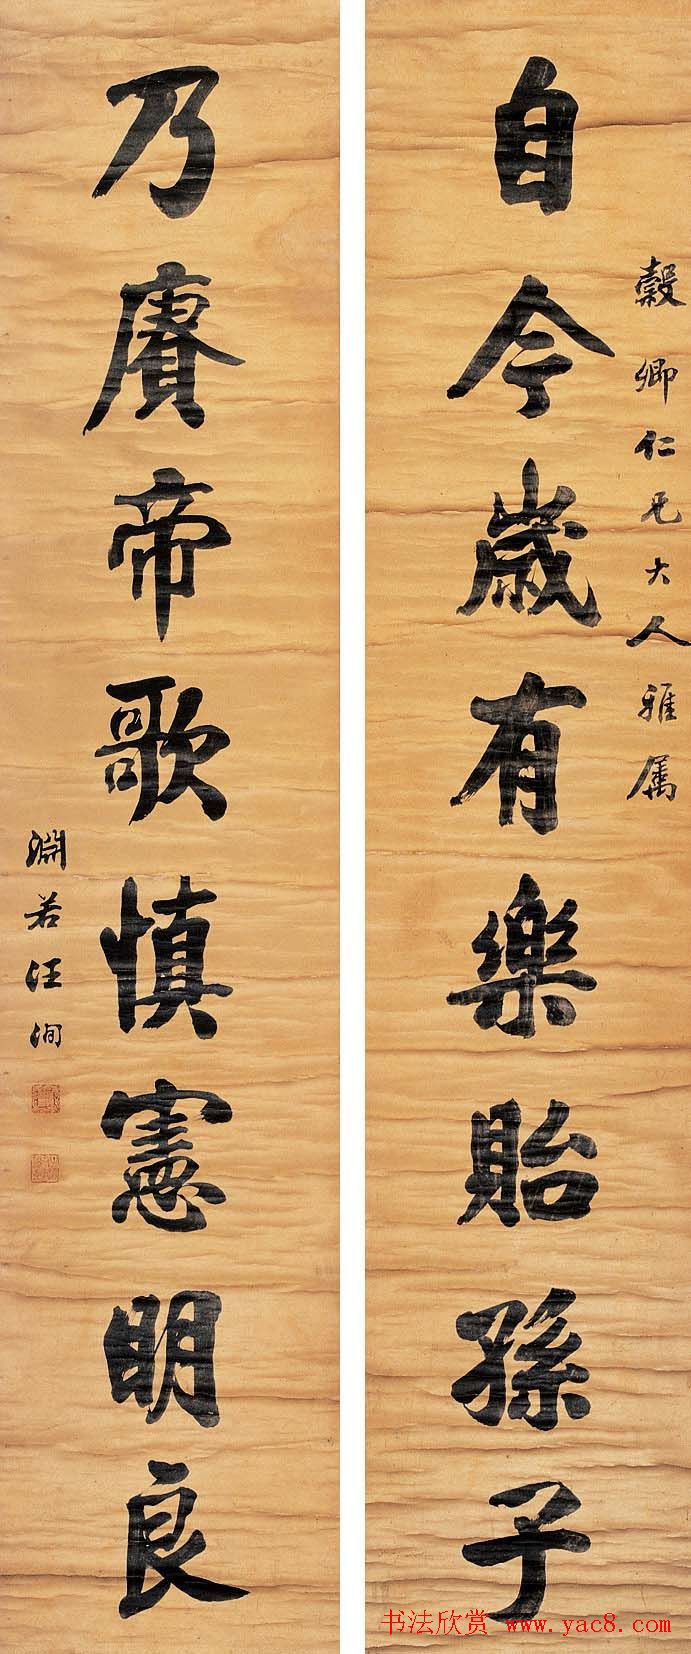 穀卿仁兄大人雅属
自今歳有樂貽孫子
乃賡帝歌慎憲明良
淵若汪洵
书法欣赏 www.yac8.com